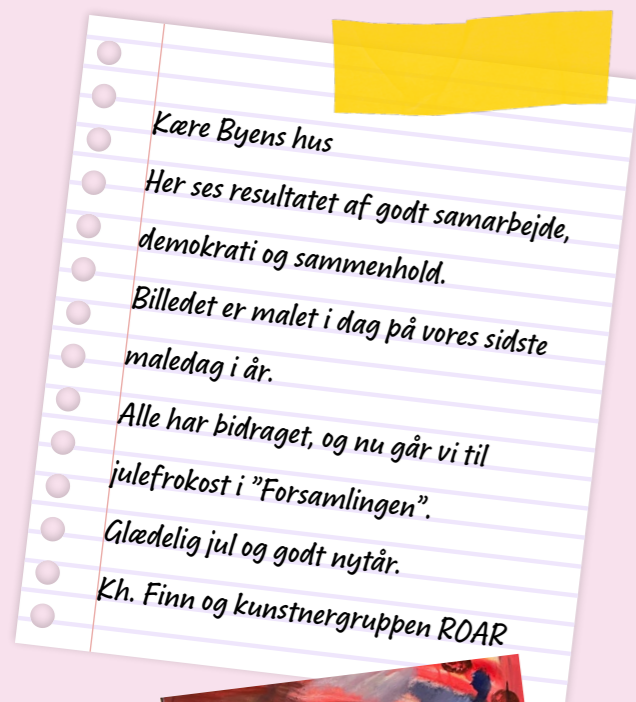 Kære Byens hus
Her ses resultatet af godt samarbejde,
demokrati og sammenhold.
Billedet er malet i dag på vores sidste
maledag i år.
Alle har bidraget, og nu går vi til
julefrokost i ”Forsamlingen”.
Glædelig jul og godt nytår.
Kh. Finn og kunstnergruppen ROAR